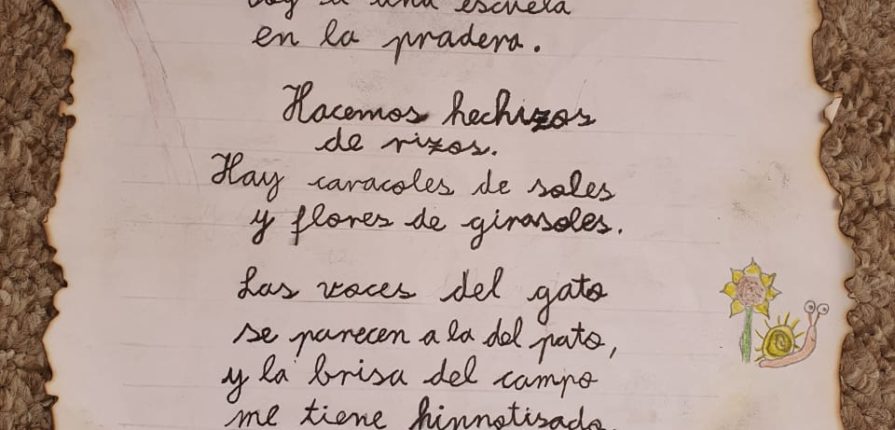 voy a una escuela
en la pradera.
Hacemos hechizos
de rizos.
Hay caracoles de soles
y flores de girasoles.
Las voces del gato
se parecen a la del pato,
y la brisa del campo
me tiene hipnotisado.